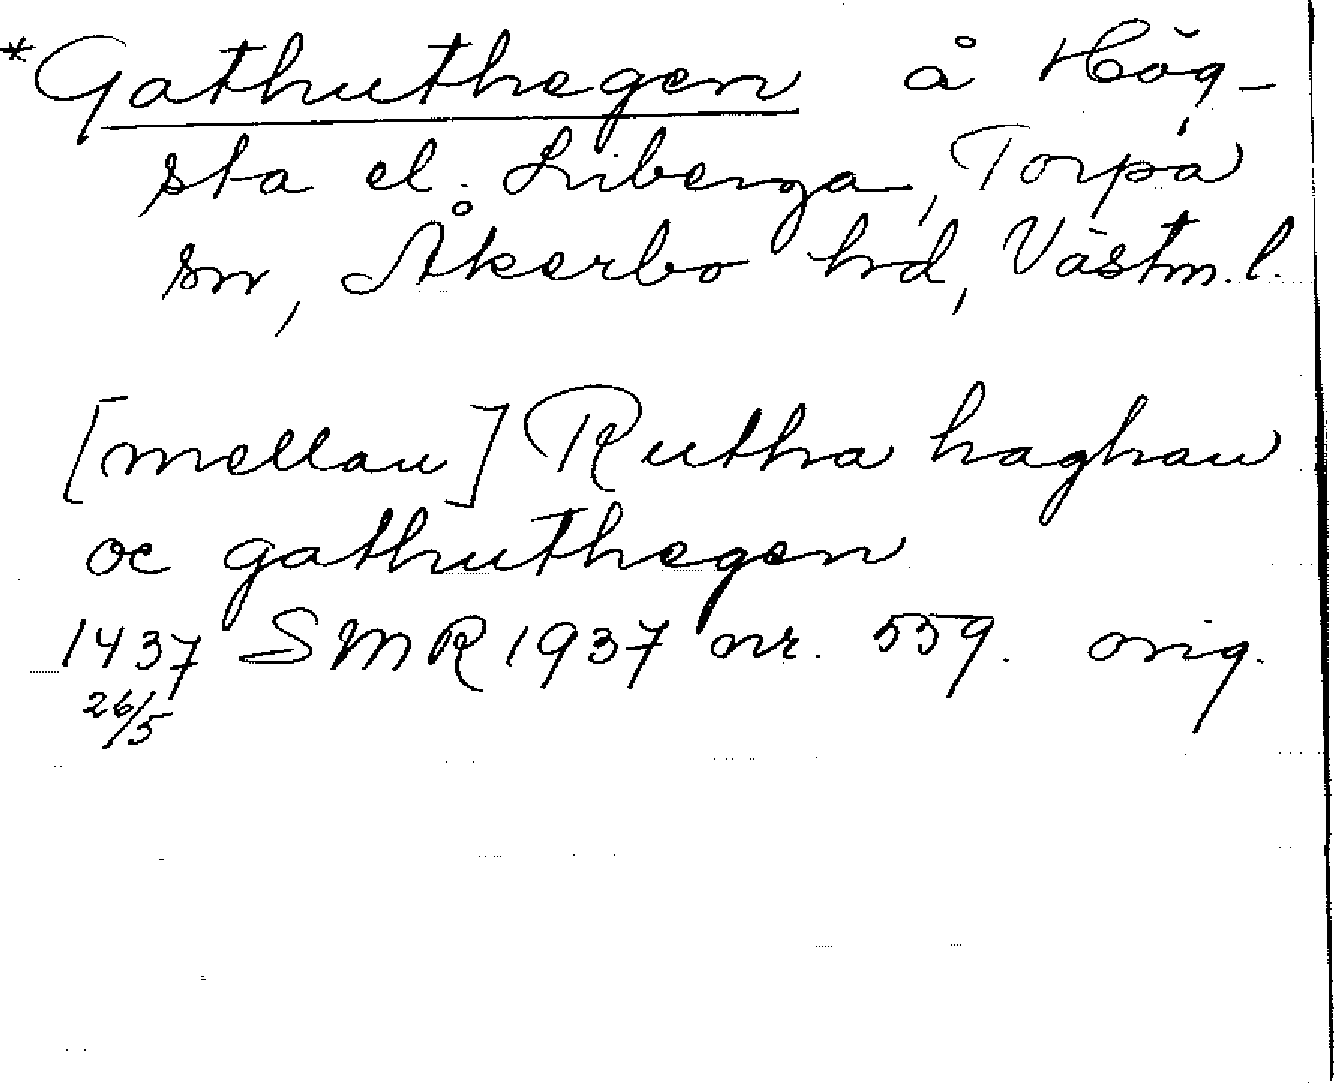 *Gathuthegen å Hög-
sta el. Liberga, Torpa
sn, Åkerbo hd, Västm. l.
[mellan] Rutha haghan
oc gathuthegen
1437 SMR 1937 nr. 559. orig.
26/5